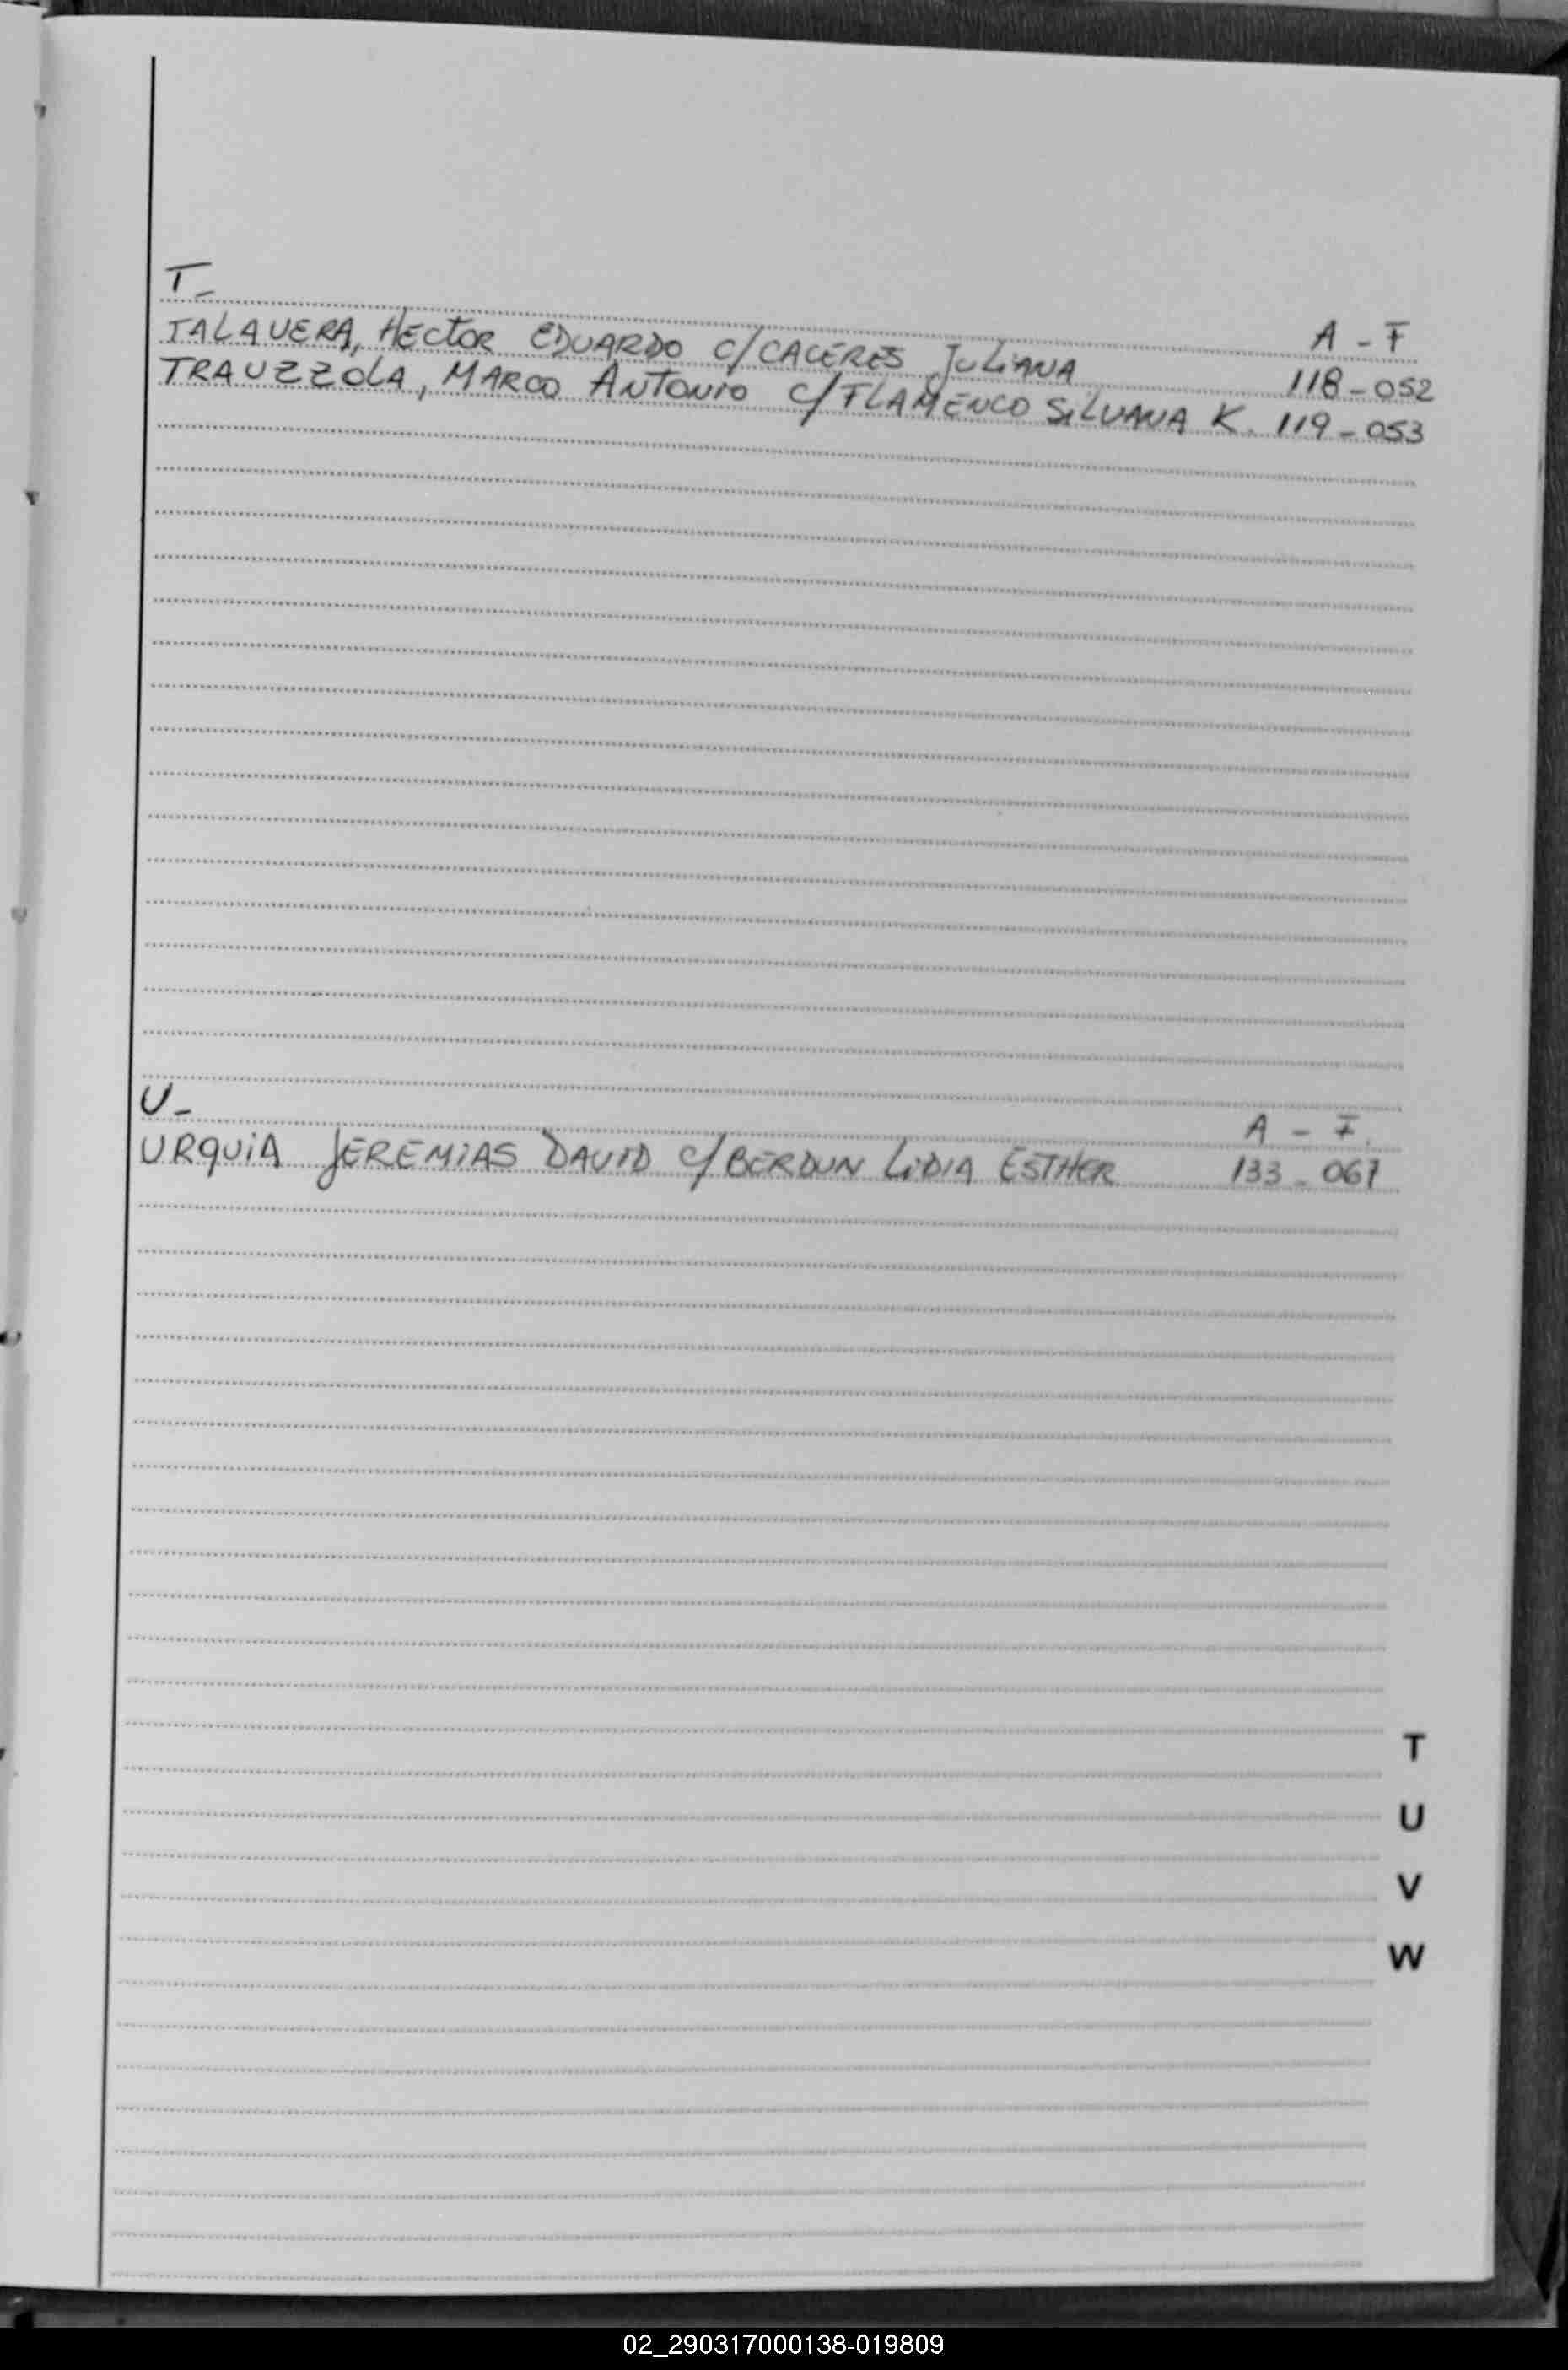 T-
A - F
TALAVERA, HECTOR EDUARDO C/CACERES JULIANA 118-052
TRAVZZOLA, MARCO ANTONIO C/FLAMENCO SILVANA K. 119-053
U-
A - F.
URQUIA JEREMIAS DAVID C/BERDUN LIDIA ESTHER 133-067
T
U
V
W
02_290317000138-019809